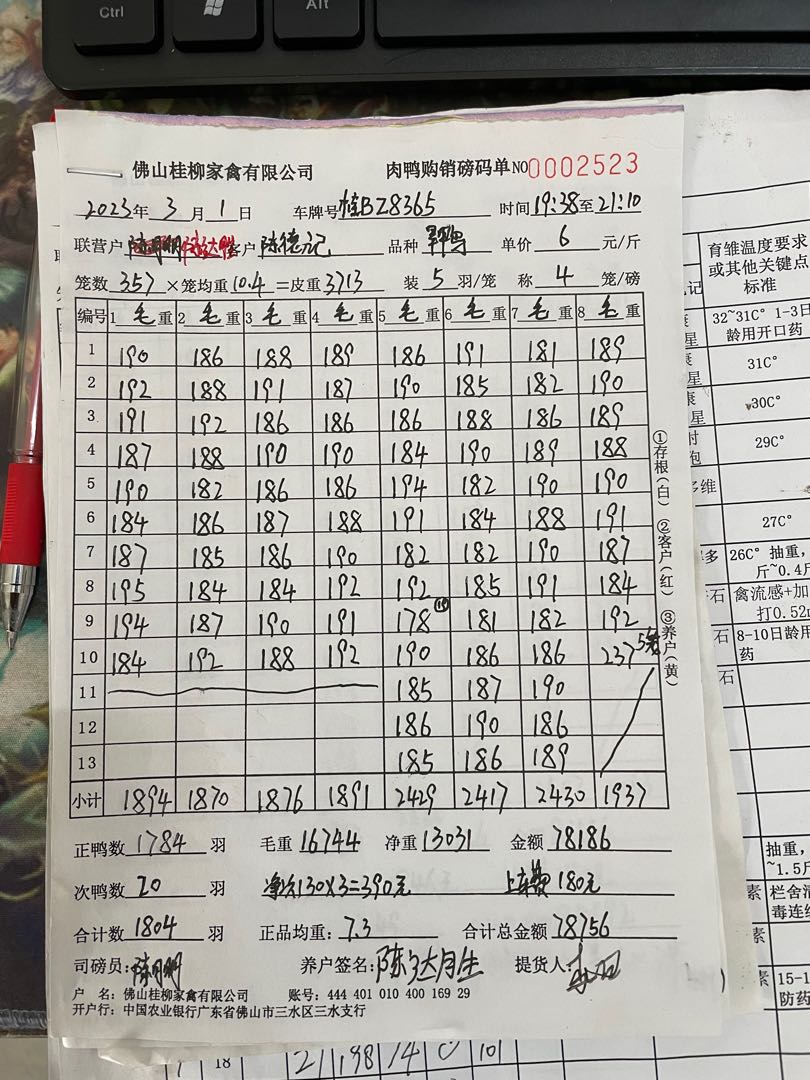 Ctrl
Alt
佛山桂柳家禽有限公司 肉鸭购销磅码单 NO 0002523
2023年 3 月 1 日 车牌号 桂BZ8365 时间 19:38至 21:10
联营户 客户 陈德记 品种 单价 6 元/斤
笼数 357 ×笼均重 10.4 =皮重 3713 装 5 羽/笼 称 4 笼/磅
编号 1 毛 重 2 毛 重 3 毛 重 4 毛 重 5 毛 重 6 毛 重 7 毛 重 8 毛 重
1 190 186 188 189 186 191 181 189
2 192 188 191 187 190 185 182 190
3 191 192 186 186 186 188 186 189
4 187 188 190 190 184 190 189 188
5 190 182 186 186 194 182 190 190
6 184 186 187 188 191 184 188 191
7 187 185 186 190 182 182 190 187
8 195 184 184 192 192 185 191 184
9 194 187 190 191 178 181 182 192
10 184 192 188 192 190 186 186 237
11 185 187 190
12 186 190 186
13 185 186 189
小计 1894 1870 1876 1891 2429 2417 2430 1937
正鸭数 1784 羽 毛重 16744 净重 13031 金额 78186
次鸭数 20 羽 130×3=390元 上车费 180元
合计数 1804 羽 正品均重: 7.3 合计总金额 78756
司磅员: 养户签名: 提货人:
户 名: 佛山桂柳家禽有限公司 账号: 444 401 010 400 169 29
开户行: 中国农业银行广东省佛山市三水区三水支行
①存根(白) ②客户(红) ③养户(黄)
育雏温度要求
或其他关键点
标准
32~31C° 1-3日
龄用开口药
31C°
30C°
29C°
27C°
26C° 抽重,
斤~0.4斤
禽流感+加
打0.52m
8-10日龄用
药
抽重,
~1.5斤
栏舍清
毒连续
15-1
防药
18 21 198 74 0 101